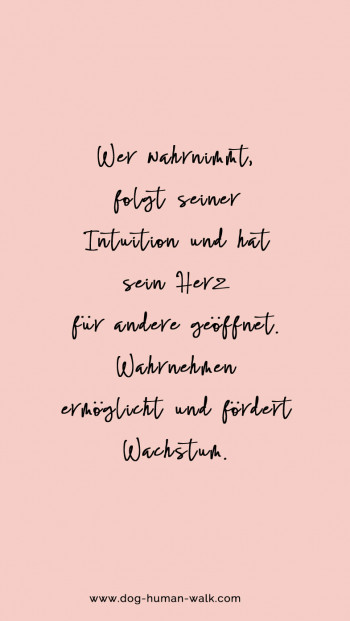 Wer wahrnimmt,
folgt seiner
Intuition und hat
sein Herz
für andere geöffnet.
Wahrnehmen
ermöglicht und fördert
Wachstum.
www.dog-human-walk.com